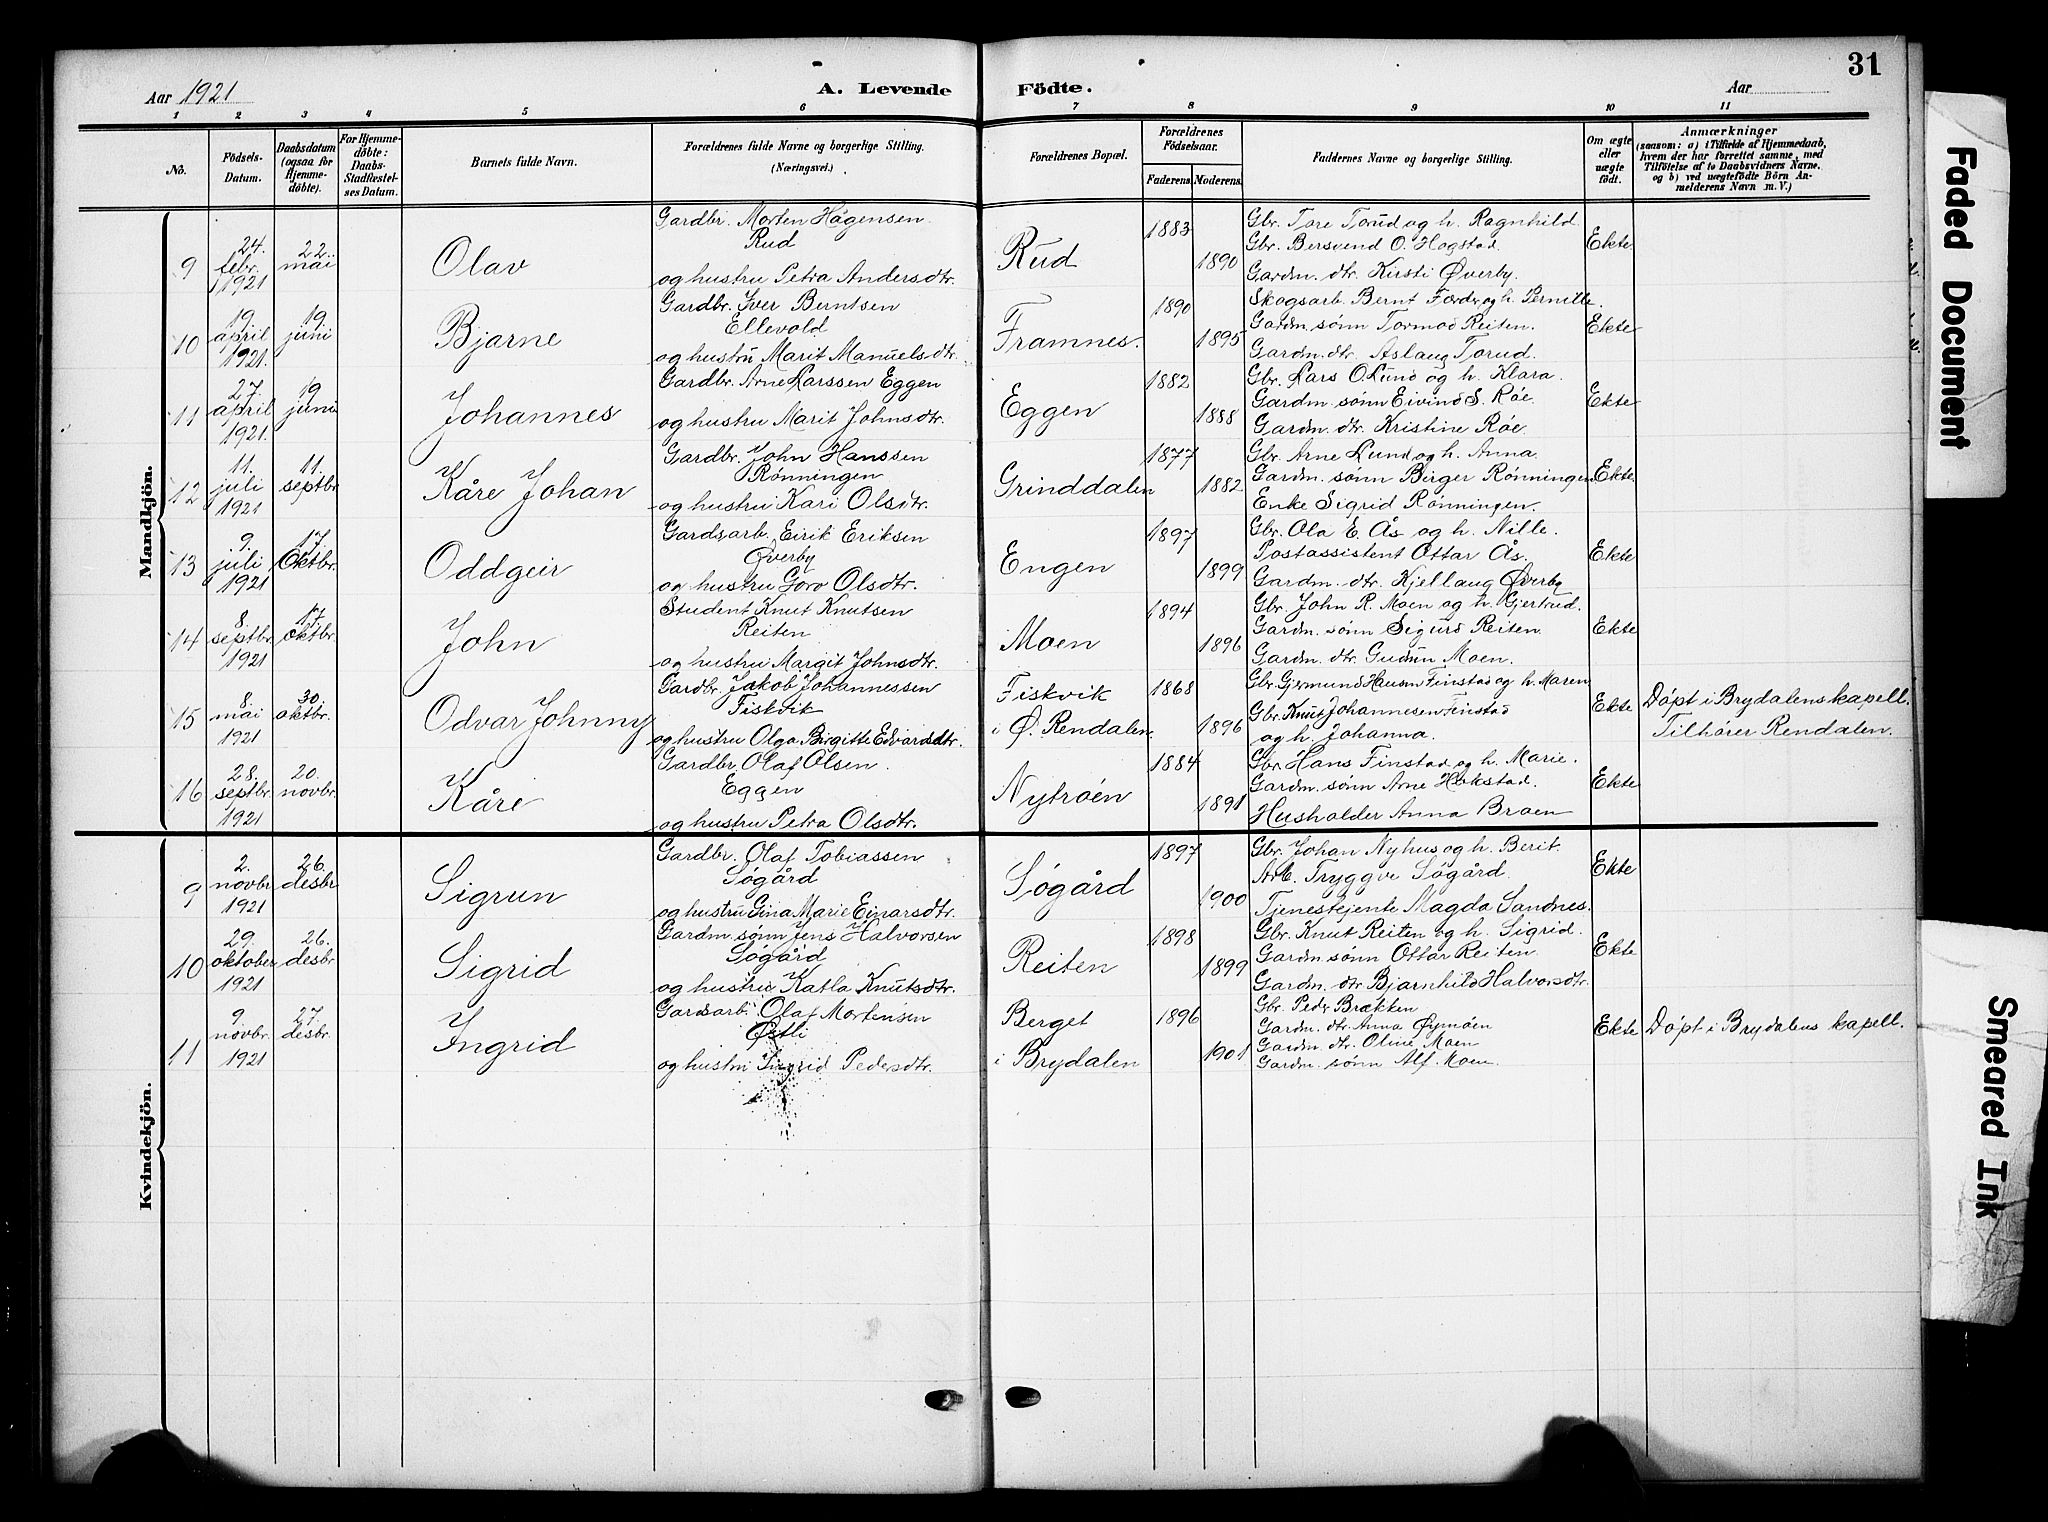 31
Aar 1921
A. Levende Födte.
Aar
1 2 3 4 5 6 7 8 9 10 11
No.
Födsels-Datum.
Daabsdatum (ogsaa for Hjemme-döbte).
For Hjemme-döbte: Daabs-Stadfæstel-ses Datum.
Barnets fulde Navn.
Forældrenes fulde Navne og borgerlige Stilling. (Næringsvei.)
Forældrenes Bopæl.
Forældrenes Födselsaar.
Faderens. Moderens.
Faddernes Navne og borgerlige Stilling.
Om ægte eller uægte födt.
Anmærkninger
(saasom: a) i Tilfælde af Hjemmedaab, hvem der har forrettet samme, med Tilföielse af to Daabsvidners Navne. og b) ved uægtefödte Börn An-melderens Navn m. V.)
Mandkjön.
9 24. febr. 1921 22. mai Olav Gardbr. Morten Hågensen Rud og hustru Petra Andersdtr. Rud 1883 1890 Gbr. Tore Torud og h. Ragnhild. Gbr. Bersvend O. Hogstad. Gardm. dtr. Kirsti Øverby. Ekte
10 19. april 1921. 19 juni Bjarne Gardbr. Iver Berntsen Ellevold og hustru Marit Manuelsdtr. Framnes. 1890 1895 Skogsarb. Bernt og h. Pernille. Gardm. sønn Tormod Reiten. Gardm. dtr. Aslaug Torud. Ekte
11 27. april 1921. 19 juni Johannes Gardbr. Arne Larssen Eggen og hustru Marit Johnsdtr. Eggen 1882 1888 Gbr. Lars O. Lund og h. Klara. Gardm. sønn Eivind S. Røe. Gardm. dtr. Kristine Røe. Ekte
12 11. juli 1921 11. septbr Kåre Johan Gardbr. John Hanssen Rønningen og hustru Kari Olsdtr. Grinddalen 1877 1882 Gbr. Arne Lund og h. Anna. Gardm. sønn Birger Rønningen Enke Sigrid Rønningen. Ekte
13 9. juli 1921 17. Oktbr. Oddgeir Gardsarb. Eirik Eriksen Øverby og hustru Goro Olsdtr. Engen 1897 1899 Gbr. Ola E. Ås og h. Nille. Postassistent Ottar Ås. Gardm. dtr. Kjellaug Øverby Ekte
14 8. septbr. 1921 17. oktbr. John Student Knut Knutsen Reiten og hustru Margit Johnsdtr. Moen 1894 1896 Gbr. John R. Moen og h. Gjertrud. Gardm. sønn Sigurd Reiten. Gardm. dtr. Gudrun Moen. Ekte
15 8. mai 1921 30. oktbr. Odvar Johnny Gardbr. Jakob Johannessen Fiskvik og hustru Olga Birgitte Edvardsdtr. Fiskvik i Ø. Rendalen. 1868 1896 Gbr. Gjermund Hansen Finstad og h. Maren Gbr. Knut Johannesen Finstad og h. Johanna. Ekte Døpt i Brydalens kapell. Tilhører Rendalen.
16 28. septbr. 1921 20. novbr. Kåre Gardbr. Olaf Olsen. Eggen og hustru Petra Olsdtr. Nytrøen 1884 1891 Gbr. Hans Finstad og h. Marie. Gardm. sønn Arne Hokstad. Husholder Anna Broen Ekte
Kvindekjön.
9 2. novbr 1921 26. desbr Sigrun Gardbr. Olaf Tobiassen Søgård og hustru Gina Marie Einarsdtr. Søgård 1897 1900 Gbr. Johan Nyhus og h. Berit. Arb. Tryggve Søgård. Tjenestejente Magda Sandnes. Ekte
10 29. oktober 1921 26. desbr Sigrid Gardm. sønn Jens Halvorsen Søgård og hustru Katla Knutsdtr. Reiten 1898 1899 Gbr. Knut Reiten og h. Sigrid. Gardm. sønn Ottar Reiten. Gardm. dtr Bjarnhild Halvorsdtr. Ekte
11 9. novbr. 1921 27. desbr. Ingrid Gardsarb. Olaf Mortensen Østli og hustru Ingrid Pedersdtr. Berget i Brydalen 1896 1901 Gbr. Peder Brækken Gardm. dtr. Anna Øymoen Gardm. dtr. Oline Moen Gardm. sønn Alf Moen. Ekte Døpt i Brydalens kapell.
Faded Document
Smeared Ink